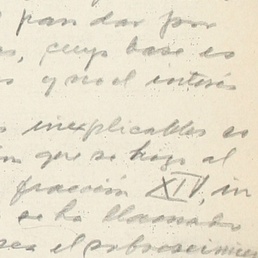 pan dar por
cuya base es
y no el interés
inexplicables es
que se hizo al
fracción XIV, in
se ha llamado
sea el sobreseimien